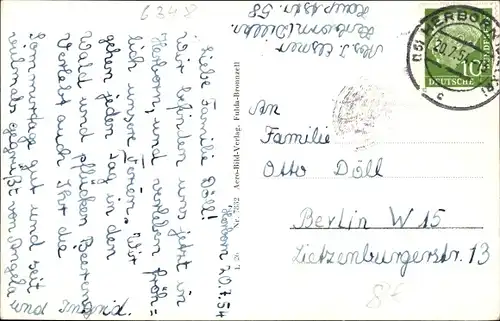 6348
Abs. J. Elsner
Herborn/Dillkr.
Hauptstr. 58
(16) HERBORN
20.7.54
10
DEUTSCHE
Herborn 20.7.54
Liebe Familie Döll!
Wir befinden uns jetzt in
Herborn, und verleben fröh=
lich unsere Ferien. Wir
gehen jeden Tag in den
Wald und pflücken Beeren.
Verlebt auch Ihr die
Sommertage gut und seit
vielmals gegrüßt von Angela
und
L. 26 Nr. 3232 Aero-Bild-Verlag, Fulda-Bronnzell
An
Familie
Otto Döll
Berlin W 15
Lietzenburgerstr. 13